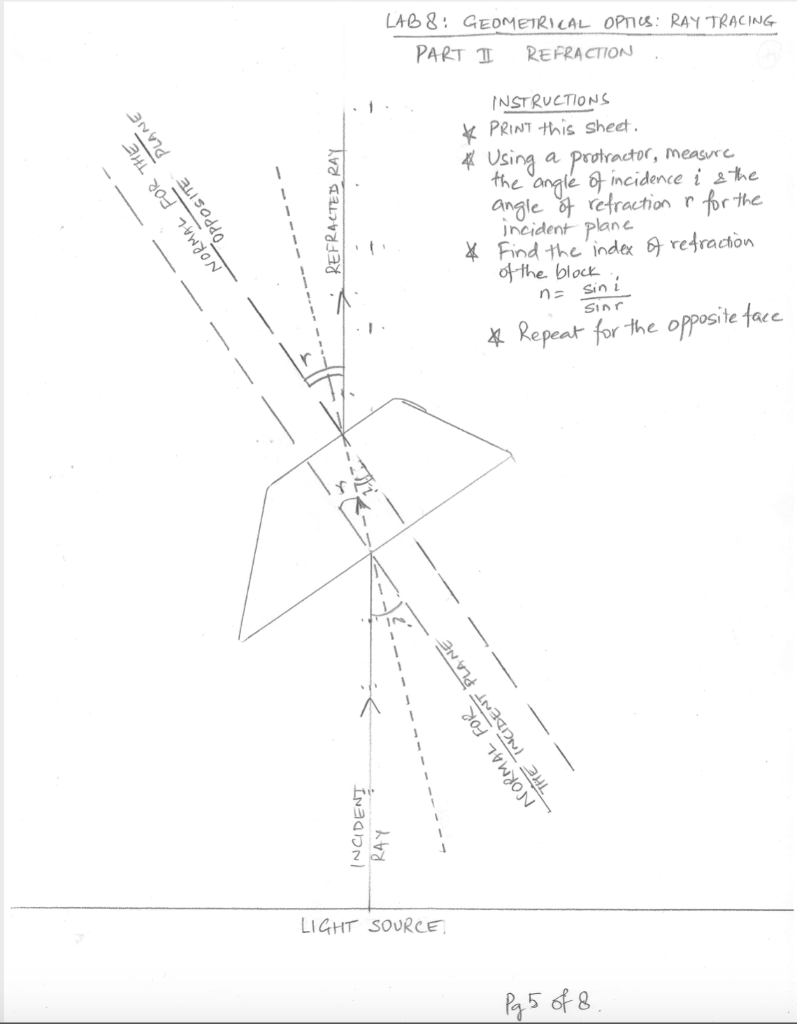 LAB 8: GEOMETRICAL OPTICS: RAY TRACING
PART II REFRACTION
INSTRUCTIONS
* PRINT this sheet.
* Using a protractor, measure
the angle of incidence i & the
angle of refraction r for the
incident plane
* Find the index of refraction
of the block.
n = sin i
sin r
* Repeat for the opposite face
NORMAL FOR THE
OPPOSITE PLANE
REFRACTED RAY
r
r
i
i
NORMAL FOR
THE INCIDENT PLANE
INCIDENT
RAY
LIGHT SOURCE.
Pg 5 of 8.